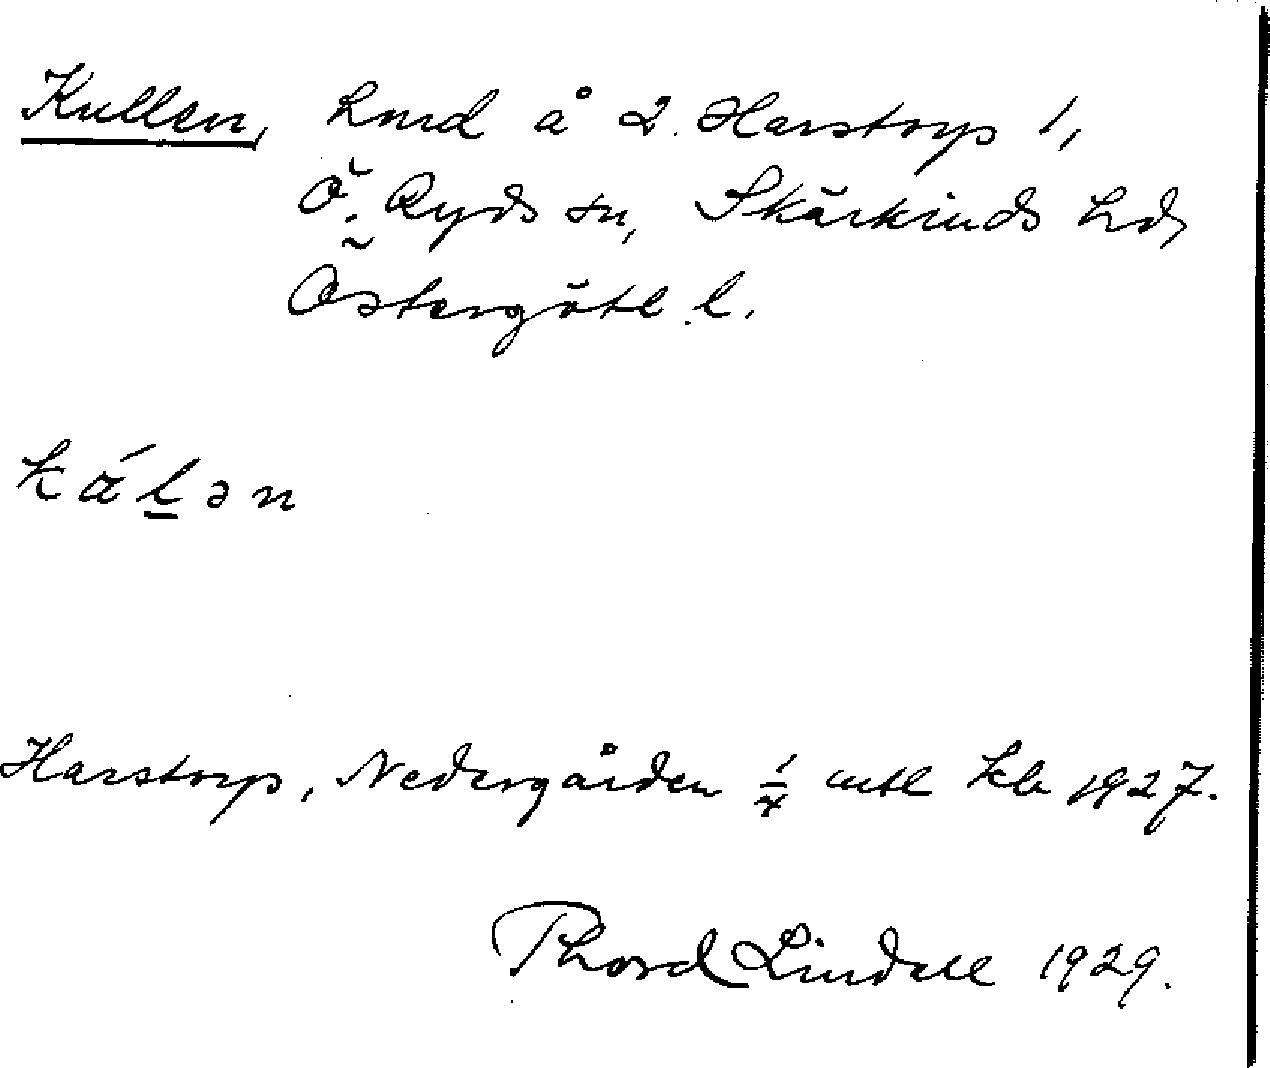 Kullen, hmd å 2. Harstorp 1,
Ö. Ryds sn, Skärkinds hd,
Östergötl. l.
kálən
Harstorp, Nedergården 1/4 mtl kb 1927.
Thord Lindell 1929.